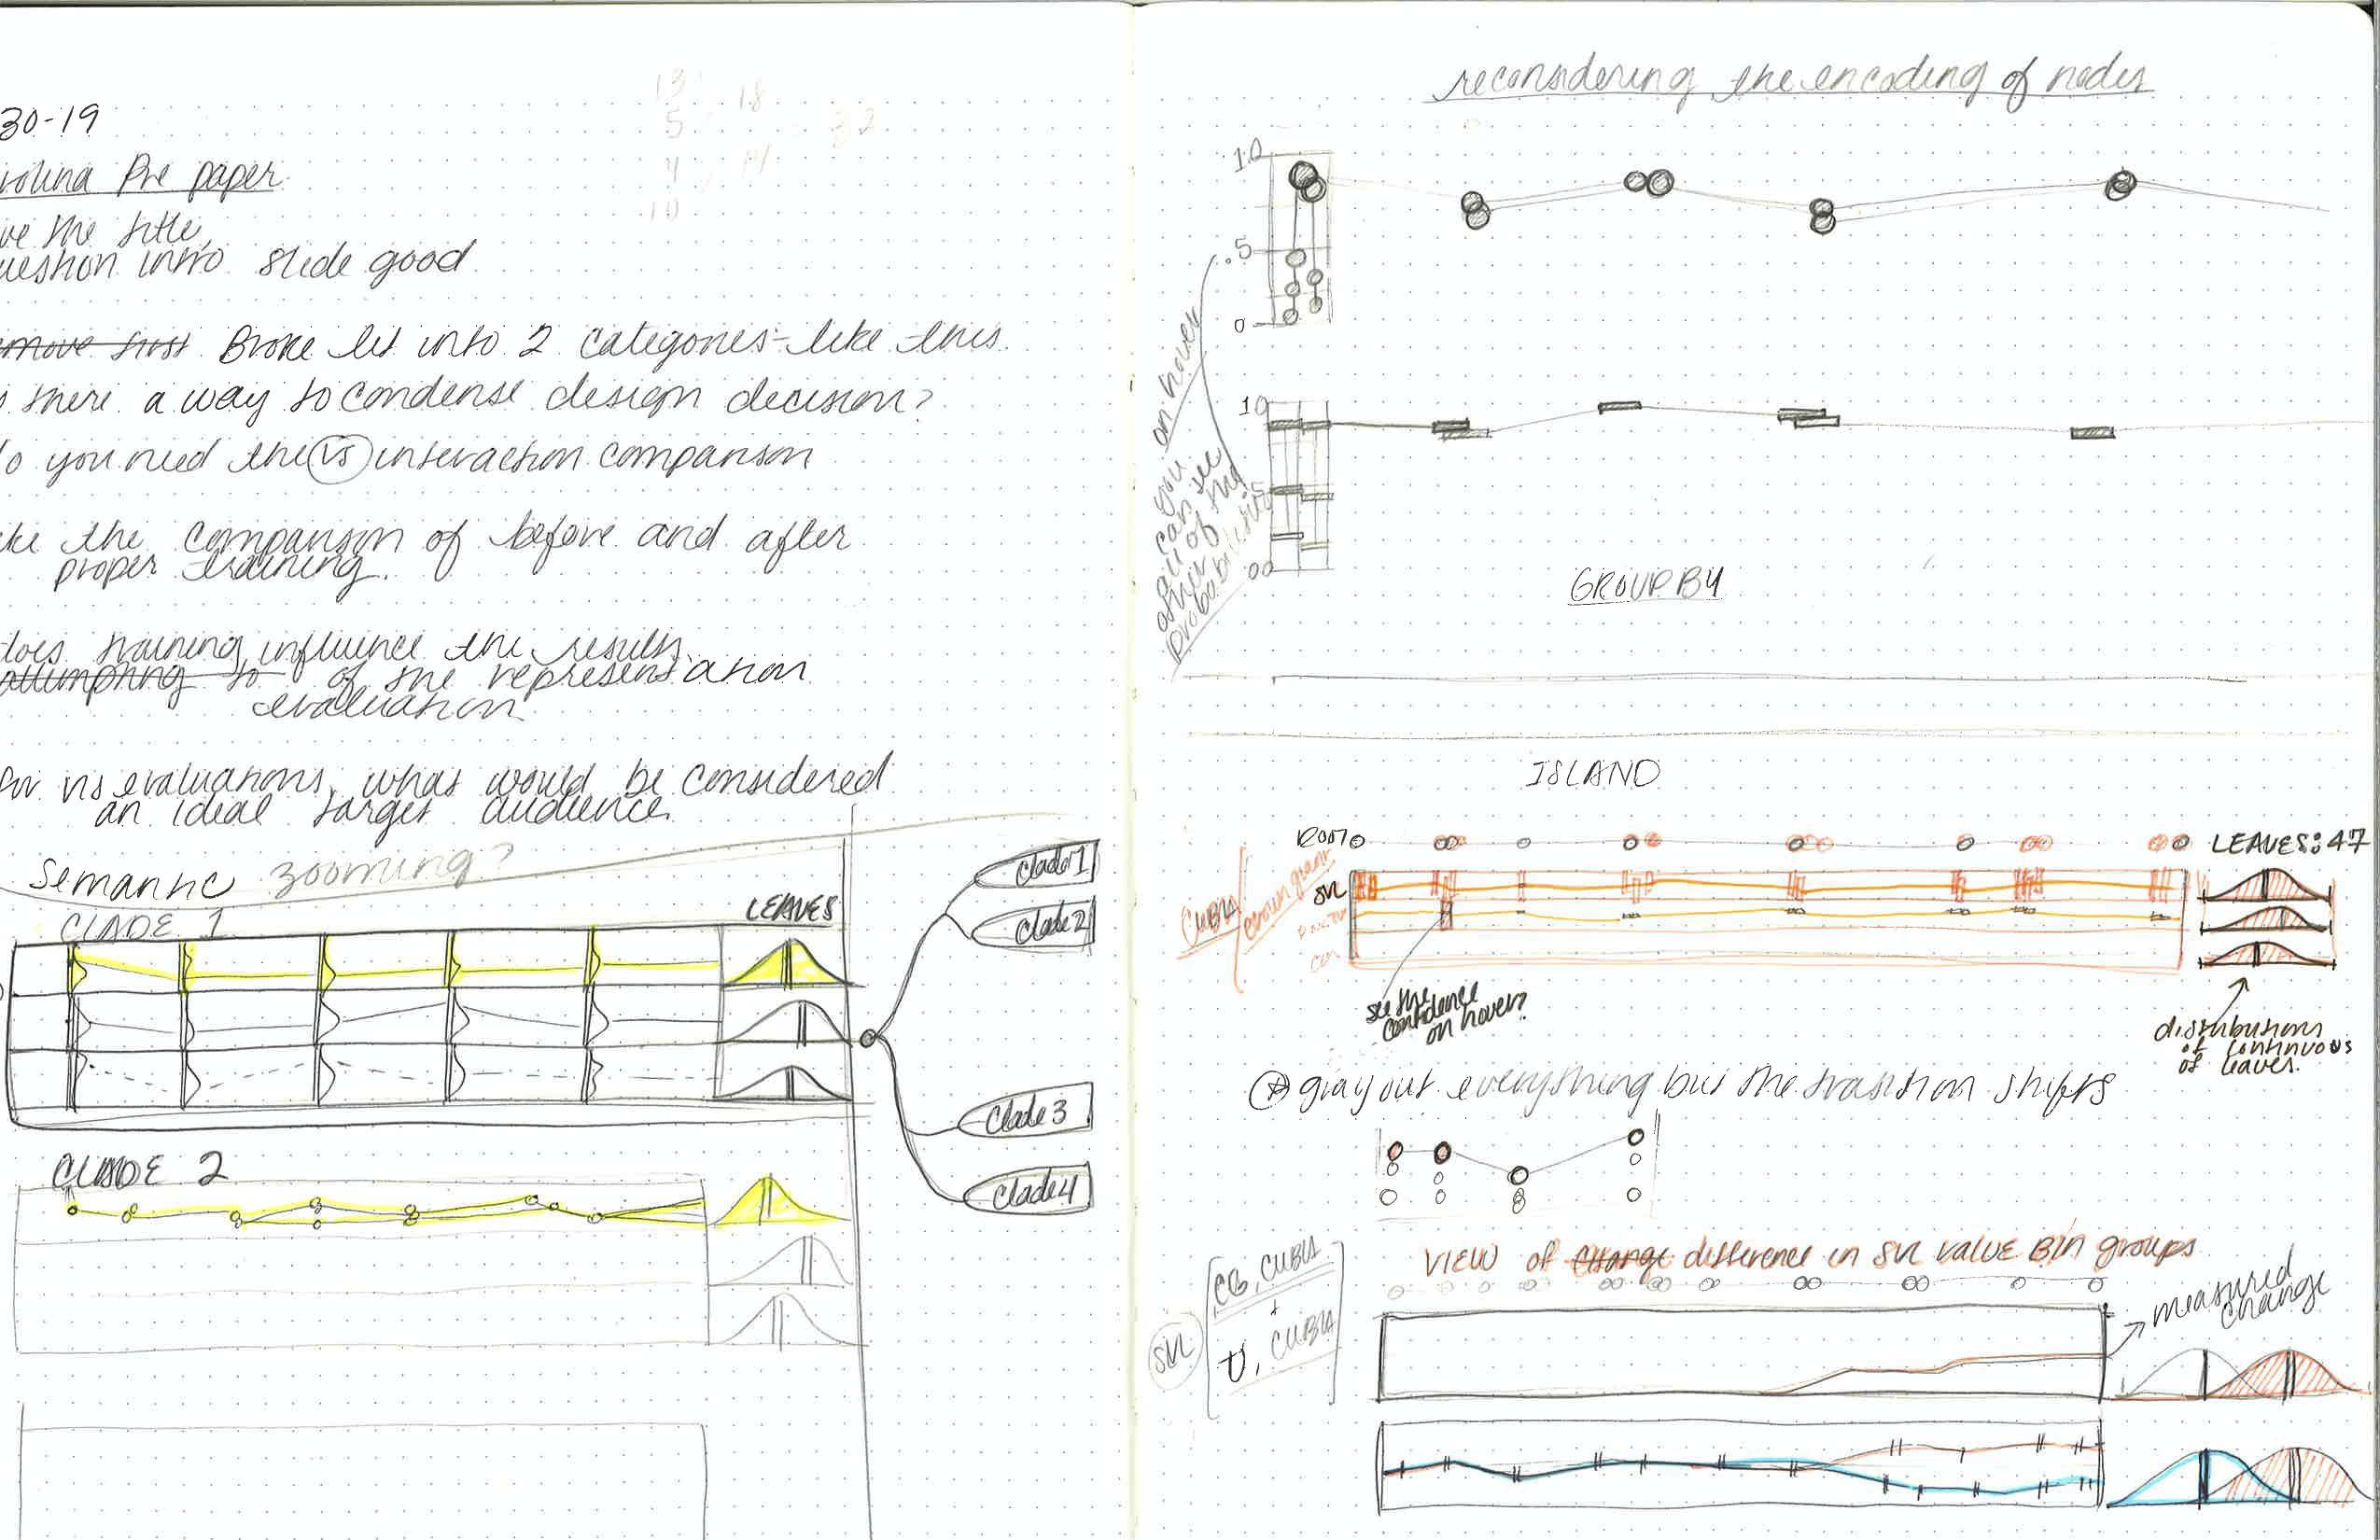 30-19
Pre paper
the title
intro slide good
move first Broke lit into 2 categories - like this
there a way to condense design decision?
o you need the vs interaction comparison
ke the comparison of before and after
proper training.
does training influence the results
attempting to of the representation
evaluation
for vis evaluations, what would be considered
an ideal target audience
Semantic zooming?
CLADE 1
LEAVES
Clade 1
Clade 2
Clade 3
Clade 4
CLADE 2
13
18
5
32
4
14
10
reconsidering the encoding of nodes
1.0
.5
0
on hover
you
can see
all of the
other
probabilities
1.0
.5
00
GROUP BY
ISLAND
ROOT
LEAVES: 47
CUBA/
crown giant
SVL
see the
confidence
on hover?
distributions
of continuous
of leaves.
+ gray out everything but the transition shifts
VIEW of change difference in SVL VALUE BIN groups
measured
change
SVL
CG, CUBA
+
T, CUBA